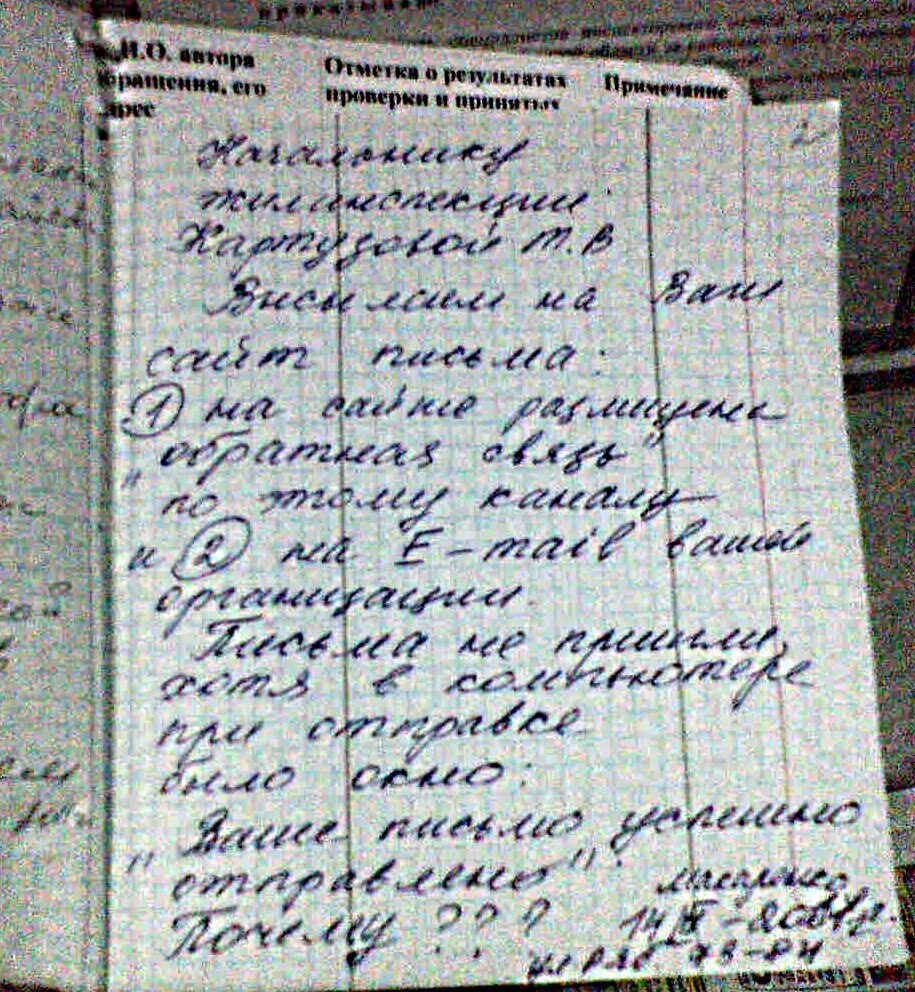 И.О. автора
обращения, его
адрес
Отметка о результатах
проверки и принятых
Примечание
2
Начальнику
жилинспекции
Картузовой Т.В
Высылали на Ваш
сайт письма:
① на сайте размещена
"обратная связь"
по этому каналу
и ② на E-mail вашей
организации.
Письма не пришли,
хотя в компьютере
при отправке
было окно:
"Ваше письмо успешно
отправлено".
Почему ???